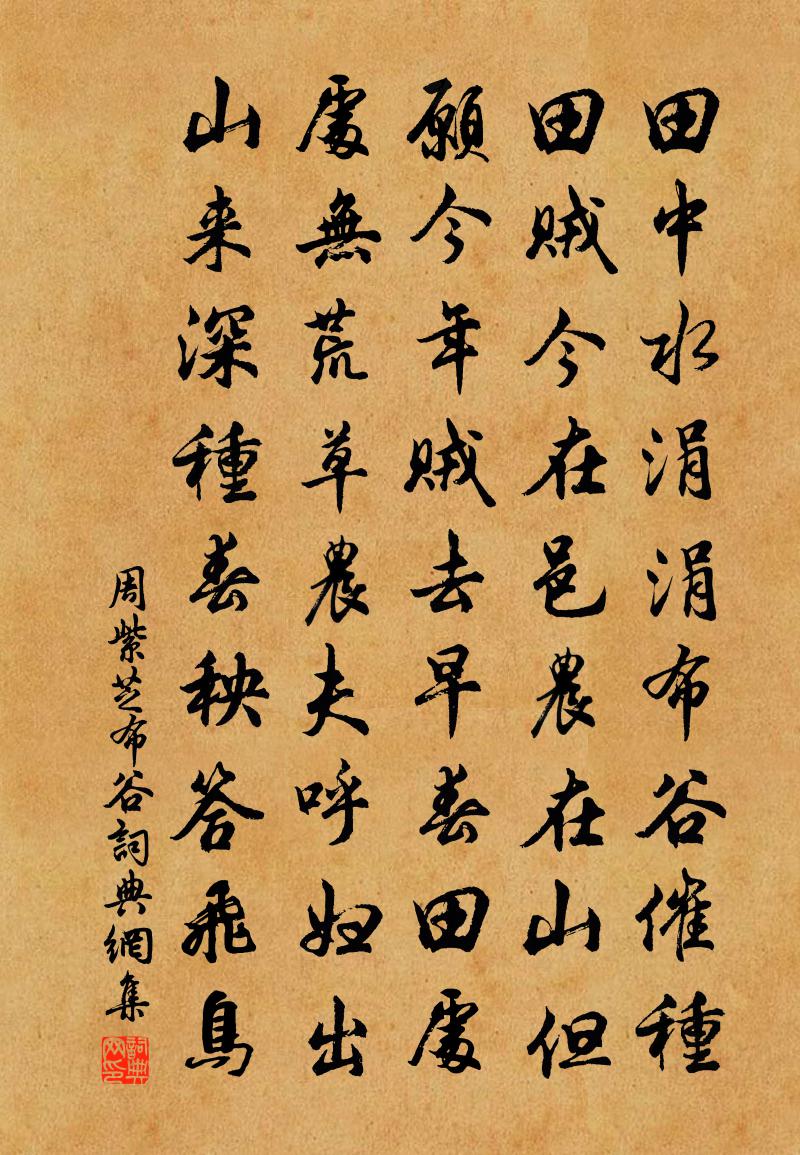 田中水涓涓布谷催種
田賊今在邑農在山但
願今年賊去早春田處
處無荒草農夫呼婦出
山来深種春秧答飛鳥
周紫芝布谷詞典網集
詞典网印